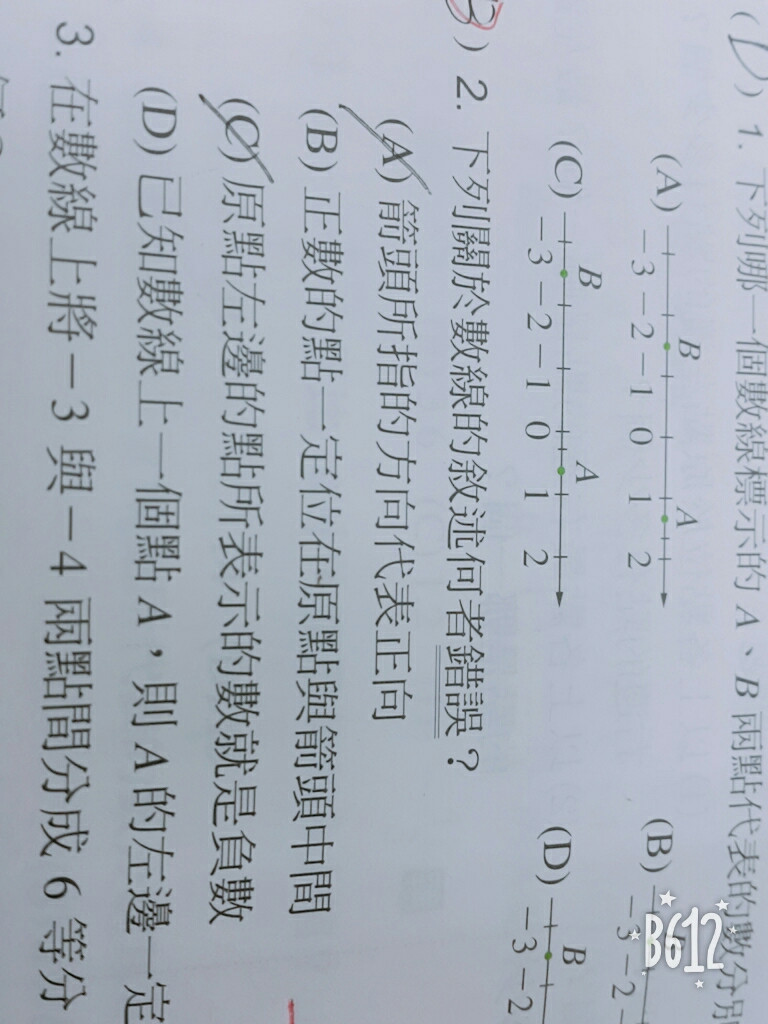 (D) 1. 下列哪一個數線標示的 A、B 兩點代表的數分別
(A) B A
-3 -2 -1 0 1 2
(B) B
-3 -2
(C) B A
-3 -2 -1 0 1 2
(D) B
-3 -2
) 2. 下列關於數線的敘述何者錯誤?
(A) 箭頭所指的方向代表正向
(B) 正數的點一定位在原點與箭頭中間
(C) 原點左邊的點所表示的數就是負數
(D) 已知數線上一個點 A,則 A 的左邊一定
3. 在數線上將-3 與-4 兩點間分成 6 等分
B612